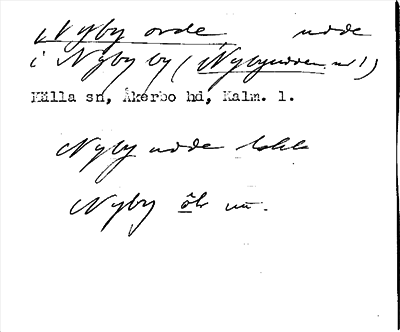 Nyby orde udde
i Nyby by (Nybyudden nr 1)
Källa sn, Åkerbo hd, Kalm. l.
Nyby udde lokk
Nyby